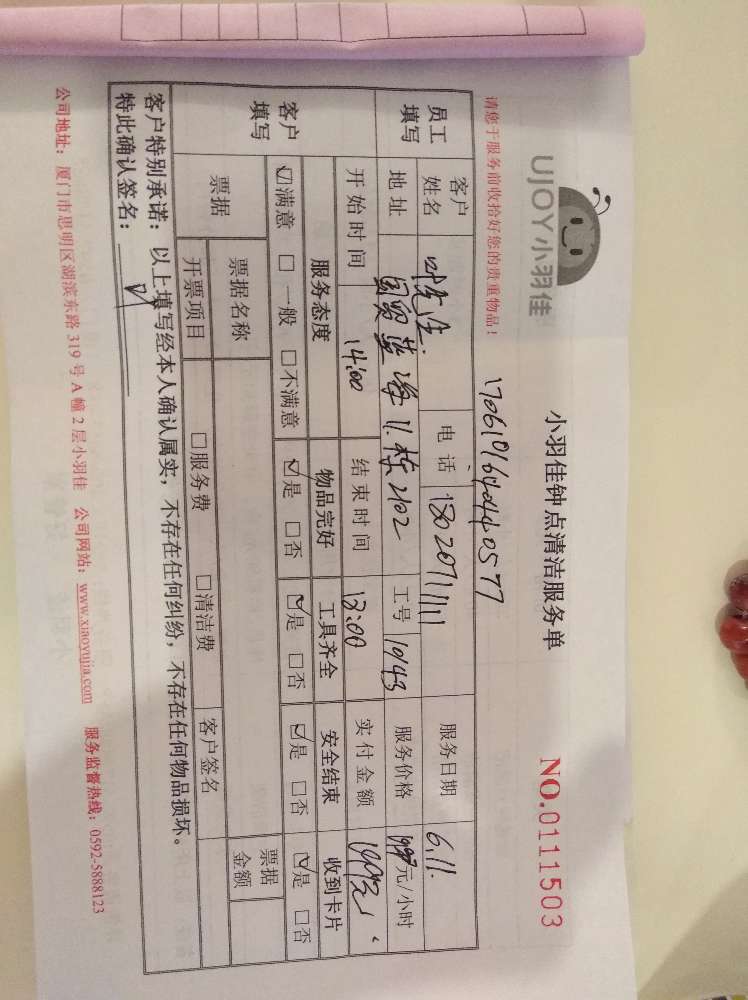 UJOY小羽佳
小羽佳钟点清洁服务单
NO.0111503
请您于服务前收拾好您的贵重物品！
员工填写 客户姓名 叶先生 电话 服务日期 6.11.
地址 国贸蓝海 11栋2102 工号 10143 服务价格 元/小时
客户填写 开始时间 14:00 结束时间 18:00 实付金额
服务态度 物品完好 工具齐全 安全结束 收到卡片
☑满意 □一般 □不满意 ☑是 □否 ☑是 □否 ☑是 □否 ☑是 □否
票据 票据名称 票据金额
开票项目 □服务费 □清洁费 客户签名
客户特别承诺：以上填写经本人确认属实，不存在任何纠纷，不存在任何物品损坏。
特此确认签名：
公司地址：厦门市思明区湖滨东路319号A幢2层小羽佳 公司网站：www.xiaoyujia.com 服务监督热线：0592-5888123